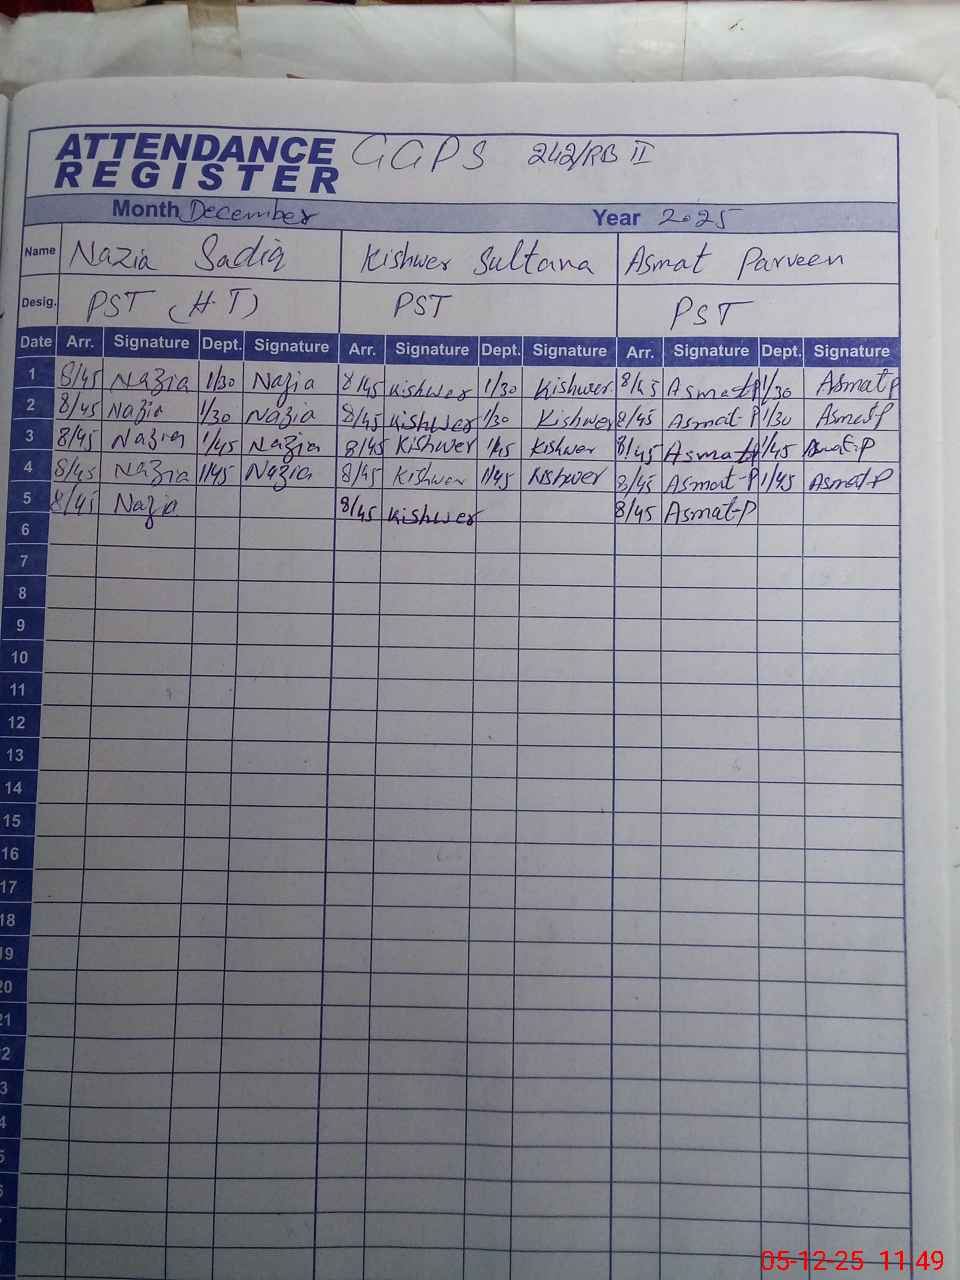 ATTENDANCE GGPS 242/RB II
REGISTER
Month December Year 2025
Name Nazia Sadiq Kishwer Sultana Asmat Parveen
Desig. PST (H.T) PST PST
Date Arr. Signature Dept. Signature Arr. Signature Dept. Signature Arr. Signature Dept. Signature
1 8/45 Nazia 1/30 Nazia 8/45 Kishwer 1/30 Kishwer 8/45 Asmat-P 1/30 Asmat-P
2 8/45 Nazia 1/30 Nazia 8/45 Kishwer 1/30 Kishwer 8/45 Asmat-P 1/30 Asmat-P
3 8/45 Nazia 1/45 Nazia 8/45 Kishwer 1/45 Kishwer 8/45 Asmat-P 1/45 Asmat-P
4 8/45 Nazia 1/45 Nazia 8/45 Kishwer 1/45 Kishwer 8/45 Asmat-P 1/45 Asmat-P
5 8/45 Nazia 8/45 Kishwer 8/45 Asmat-P
6
7
8
9
10
11
12
13
14
15
16
17
18
19
20
21
2
3
4
5
05-12-25 11:49